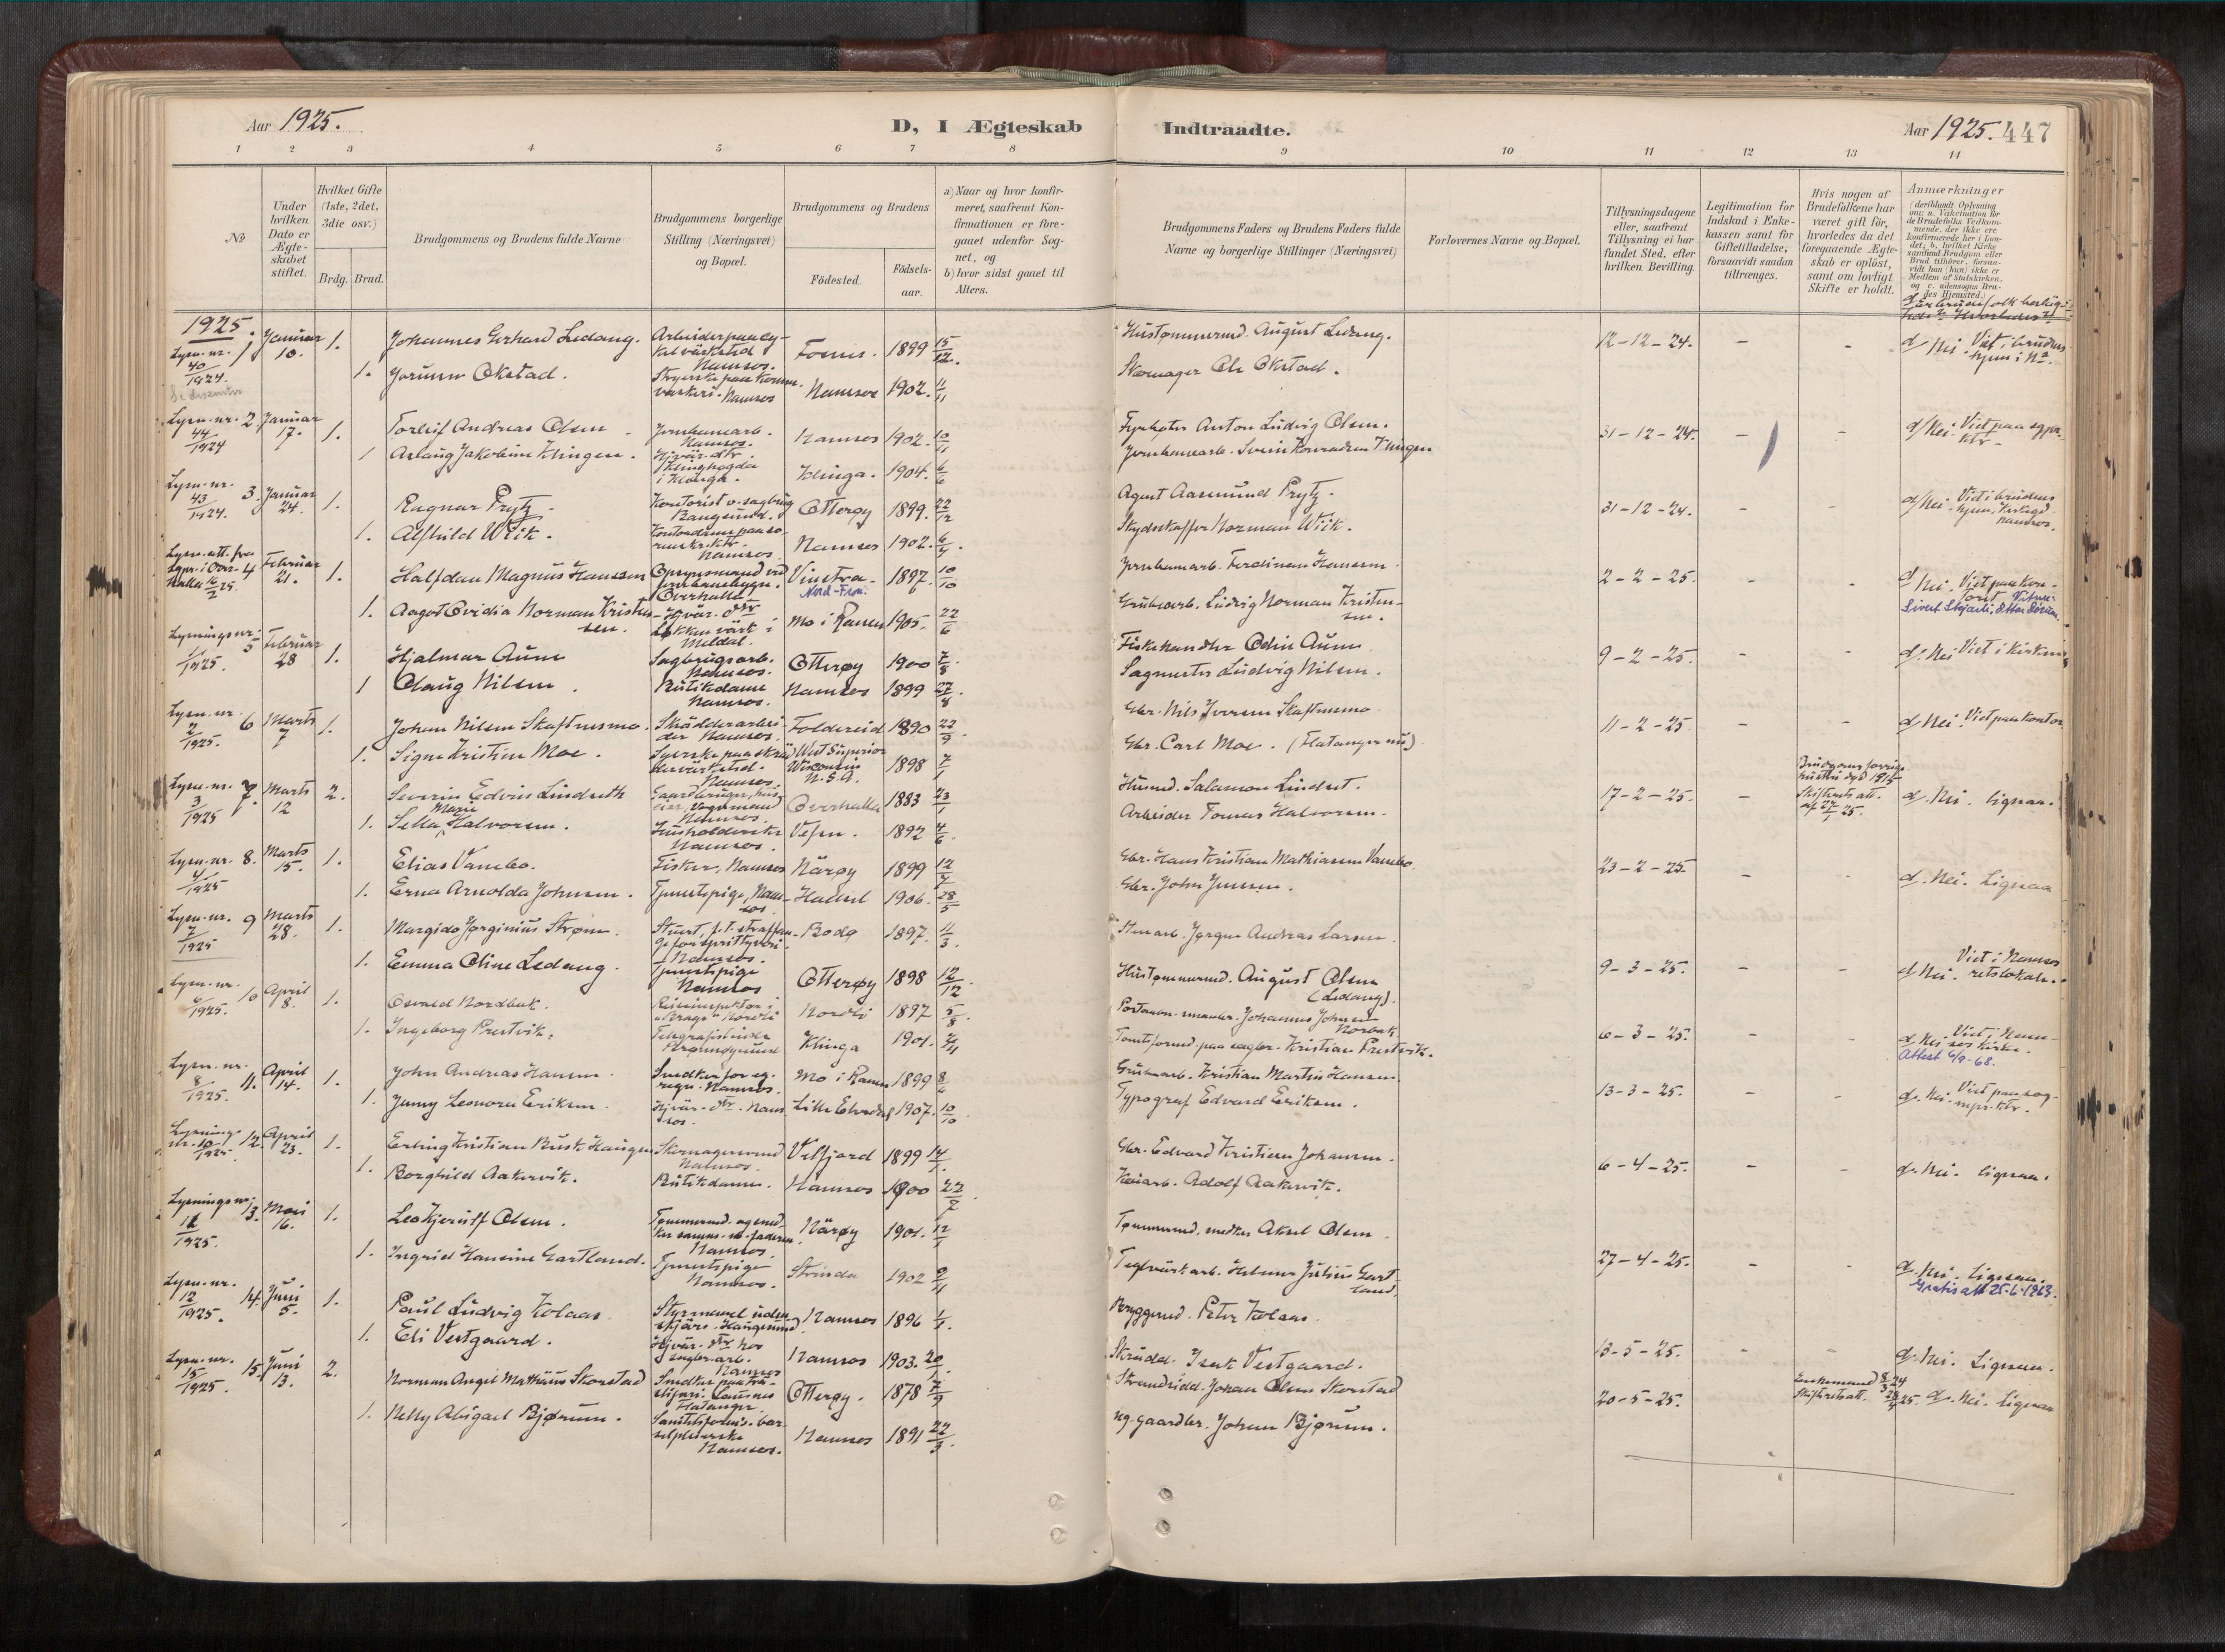 Aar 1925.
D, I Ægteskab
Indtraadte.
Aar 1925. 447
1 2 3 4 5 6 7 8 9 10 11 12 13 14
No
Under
hvilken
Dato er
Ægte-
skabet
stiftet.
Hvilket Gifte
(1ste, 2det,
3die osv.)
Brdg. Brud.
Brudgommens og Brudens fulde Navne
Brudgommens borgerlige
Stilling (Næringsvei)
og Bopæl.
Brudgommens og Brudens
Födested.
Födsels-
aar.
a) Naar og hvor konfir-
meret, saafremt Kon-
firmationen er fore-
gaaet udenfor Sog-
net, og
b) hvor sidst gaaet til
Alters.
Brudgommens Faders og Brudens Faders fulde
Navne og borgerlige Stillinger (Næringsvei)
Forlovernes Navne og Bopæl.
Tillysningsdagene
eller, saafremt
Tillysning ei har
fundet Sted, efter
hvilken Bevilling.
Legitimation for
Indskud i Enke-
kassen samt for
Giftetilladelse,
forsaavidt saadan
tiltrænges.
Hvis nogen af
Brudefolkene har
været gift för,
hvorledes da det
foregaaende Ægte-
skab er oplöst,
samt om lovligt
Skifte er holdt.
Anmærkninger
(deriblandt Oplysning
om: a. Vakcination for
de Brudefolks Vedkom-
mende, der ikke ere
konfirmerede her i Lan-
det; b. hvilket Kirke
samfund Brudgom eller
Brud tilhörer, forsaa-
vidt han (hun) ikke er
Medlem af Statskirken,
og c. udensogns Bru-
des Hjemsted.)
1925.
Lysn. nr. 40/1924. 1 Januar 10. 1. Johannes Gerhard Ledang. Namsos. 1899 15/12. Hustømmermd. August Ledang. 12-12-24. - - d/ Nei. Viet i brudens hjem i
1. Jorunn Okstad. Namsos Namsos 1902. 11/11 Skomager Ole Okstad.
Lysn. nr. 44/1924 2. Januar 17. 1. Torleif Andreas Olsen Jernbanearb. Namsos. Namsos 1902. 10/11 Fyrbøter Anton Ludvig Olsen. 31-12-24. - - d/ Nei. Viet paa sgpr. ktr.
1 Aslaug Jakobine Klingen. Hjvær. dtr. i Klinga. Klinga. 1904. 6/6 Jernbanearb. Svein Konradsen Klingen
Lysn. nr. 43/1924. 3. Januar 24. 1. Ragnar Prytz. Kontorist v. sagbrug Bangsund. Otterøy 1899. 22/12 Agent Aasmund Prytz. 31-12-24. - - d/ Nei. Viet i brudens hjem, Namsos.
1. Alfhild Wiik. Namsos. Namsos 1902. Skydsskaffer Norman Wiik.
Lysn. att. fra sgpr. i Over-halla 16/2 25. 4 Februar 21. 1. Halfdan Magnus Hanssen Opsynsmand ved jernbanebygn. Overhalla Vinstra. Nord-Fron. 1897. 10/10 Jernbanearb. Ferdinan Hanssen 2-2-25. - - d/ Nei. Viet paa kontoret.
1. Aagot Ovidia Norman Kristensen. Hjvær. dtr Løkken verk i Meldal. Mo i Ranen 1905. 22/6 Grubearb. Ludvig Norman Kristensen.
Lysnings nr. 1/1925. 5 Februar 28 1. Hjalmar Aune Sagbrugsarb. Namsos. Otterøy 1900 7/8. Fiskehandler Odin Aune 9-2-25. - - d. Nei Viet i kirken
1 Olaug Nilsen. Butikdame Namsos. Namsos 1899 27/8. Sagmester Ludvig Nilsen.
Lysn. nr. 2/1925. 6 Marts 7 1. Johan Nilsen Skaftnesmo. Skrædderarbeider Namsos. Foldereid 1890 22/9. Gbr. Nils Iversen Skaftnesmo. 11-2-25. - - d/ Nei. Viet paa kontor
1. Signe Kristine Moe. Syerske paa skrædderværksted. Namsos West Superior Wisconsin N.S.A. 1898 7/1 Gbr. Carl Moe. (Flatanger nu)
Lysn. nr. 3/1925 7. Marts 12 2. Severin Edvin Lindseth Namsos Overhalla 1883 23/1 Husmd. Salamon Lindset. 17-2-25. - d. Nei. lignaa.
1. Sella Marie Halvorsen. Husholderske Namsos. Vefsn. 1892 4/6. Arbeider Tomas Halvorsen.
Lysn. nr. 4/1925 8. Marts 15. 1. Elias Vansbo. Fisker, Namsos Nærøy 1899 12/7 Gbr. Hans Kristian Mathiassen Vansbo 23-2-25. - - d. Nei. Lignaa
1. Erna Arnolda Johnsen. Tjenestepige, Namsos Hadsel 1906. 28/5 Gbr. John Jensen.
Lysn. nr. 7/1925 9 Marts 28. 1. Margido Jørginius Strøm. Namsos. Bodø 1897. 11/3. Jørgen Andreas Larsen 9-3-25. - - d Nei. Viet i Namsos retslokale.
1. Emma Oline Ledang. Tjenestepige Namsos Otterøy 1898 12/12. Hustømmermd. August Olsen (Ledang).
Lysn. nr. 6/1925. 10 April 8. 1. Osvald Nordbak. Nordli 1897 5/8. Johannes Johnsen Norbak 6-3-25. - - d Nei. Viet i Namsos kirke. Attest 4/9-68.
1. Ingeborg Prestvik. Klinga 1901. Tomteformd. paa sagbr. Kristian Prestvik.
Lysn. nr. 8/1925. 11. April 14. 1. John Andreas Hansen. Snedker for eg. regn. Namsos. Mo i Ranen 1899 8/6 Grubearb. Kristian Martin Hansen 13-3-25. - - d. Nei. Viet paa sogneprs. ktr.
1. Jenny Leonora Eriksen. Hjvær. dtr. Namsos. Lille Elvedal 1907. 10/10 Typograf Edvard Eriksen.
Lysnings nr. 10/1925 12. April 23. 1. Erling Kristian Busk Haugen Skomagersvend Namsos. Velfjord 1899 14/1. Gbr. Edvard Kristian Johansen. 6-4-25. - - d. Nei. lignaa.
1. Borghild Aakervik. Butikdame. Namsos 1900 22/2. Kaiarb. Adolf Aakervik.
Lysnings nr. 11/1925. 13. Mai 16. 1. Leo Kjerulf Olsen. Namsos. Nærøy 1901. 12/1 Tømmermd. snedker Aksel Olsen 27-4-25. - - d. Nei. Lignaa. Gratisatt 25-6-1963.
1. Ingrid Hansine Gartland. Tjenestepige Namsos. Strinda 1902 9/11 Teglværkarb. Helmer Julius Gartland.
Lysn. nr. 12/1925. 14. Juni 5. 1. Paul Ludvig Kolaas Styrmand udenskjærs. Haugesund Namsos 1896 1/1. Bryggemd. Peter Kolaas. 13-5-25. - - d. Nei. Lignaa.
1. Eli Vestgaard. Hjvær. dtr hos sagbr. arb. Namsos Namsos 1903. 20/1. Skrædd. Isak Vestgaard.
Lysn. nr. 15/1925. 15. Juni 13. 2. Norman Angel Mathæus Skorstad Flatanger. Otterøy. 1878 7/9 Strandsidd. Johan Olsen Skorstad 20-5-25. Enkemand Skifteretsatt. d. Nei. Lignaa
1. Nelly Abigael Bjørum. Namsos. Namsos 1891 22/3. Gaardbr. Johan Bjørum.